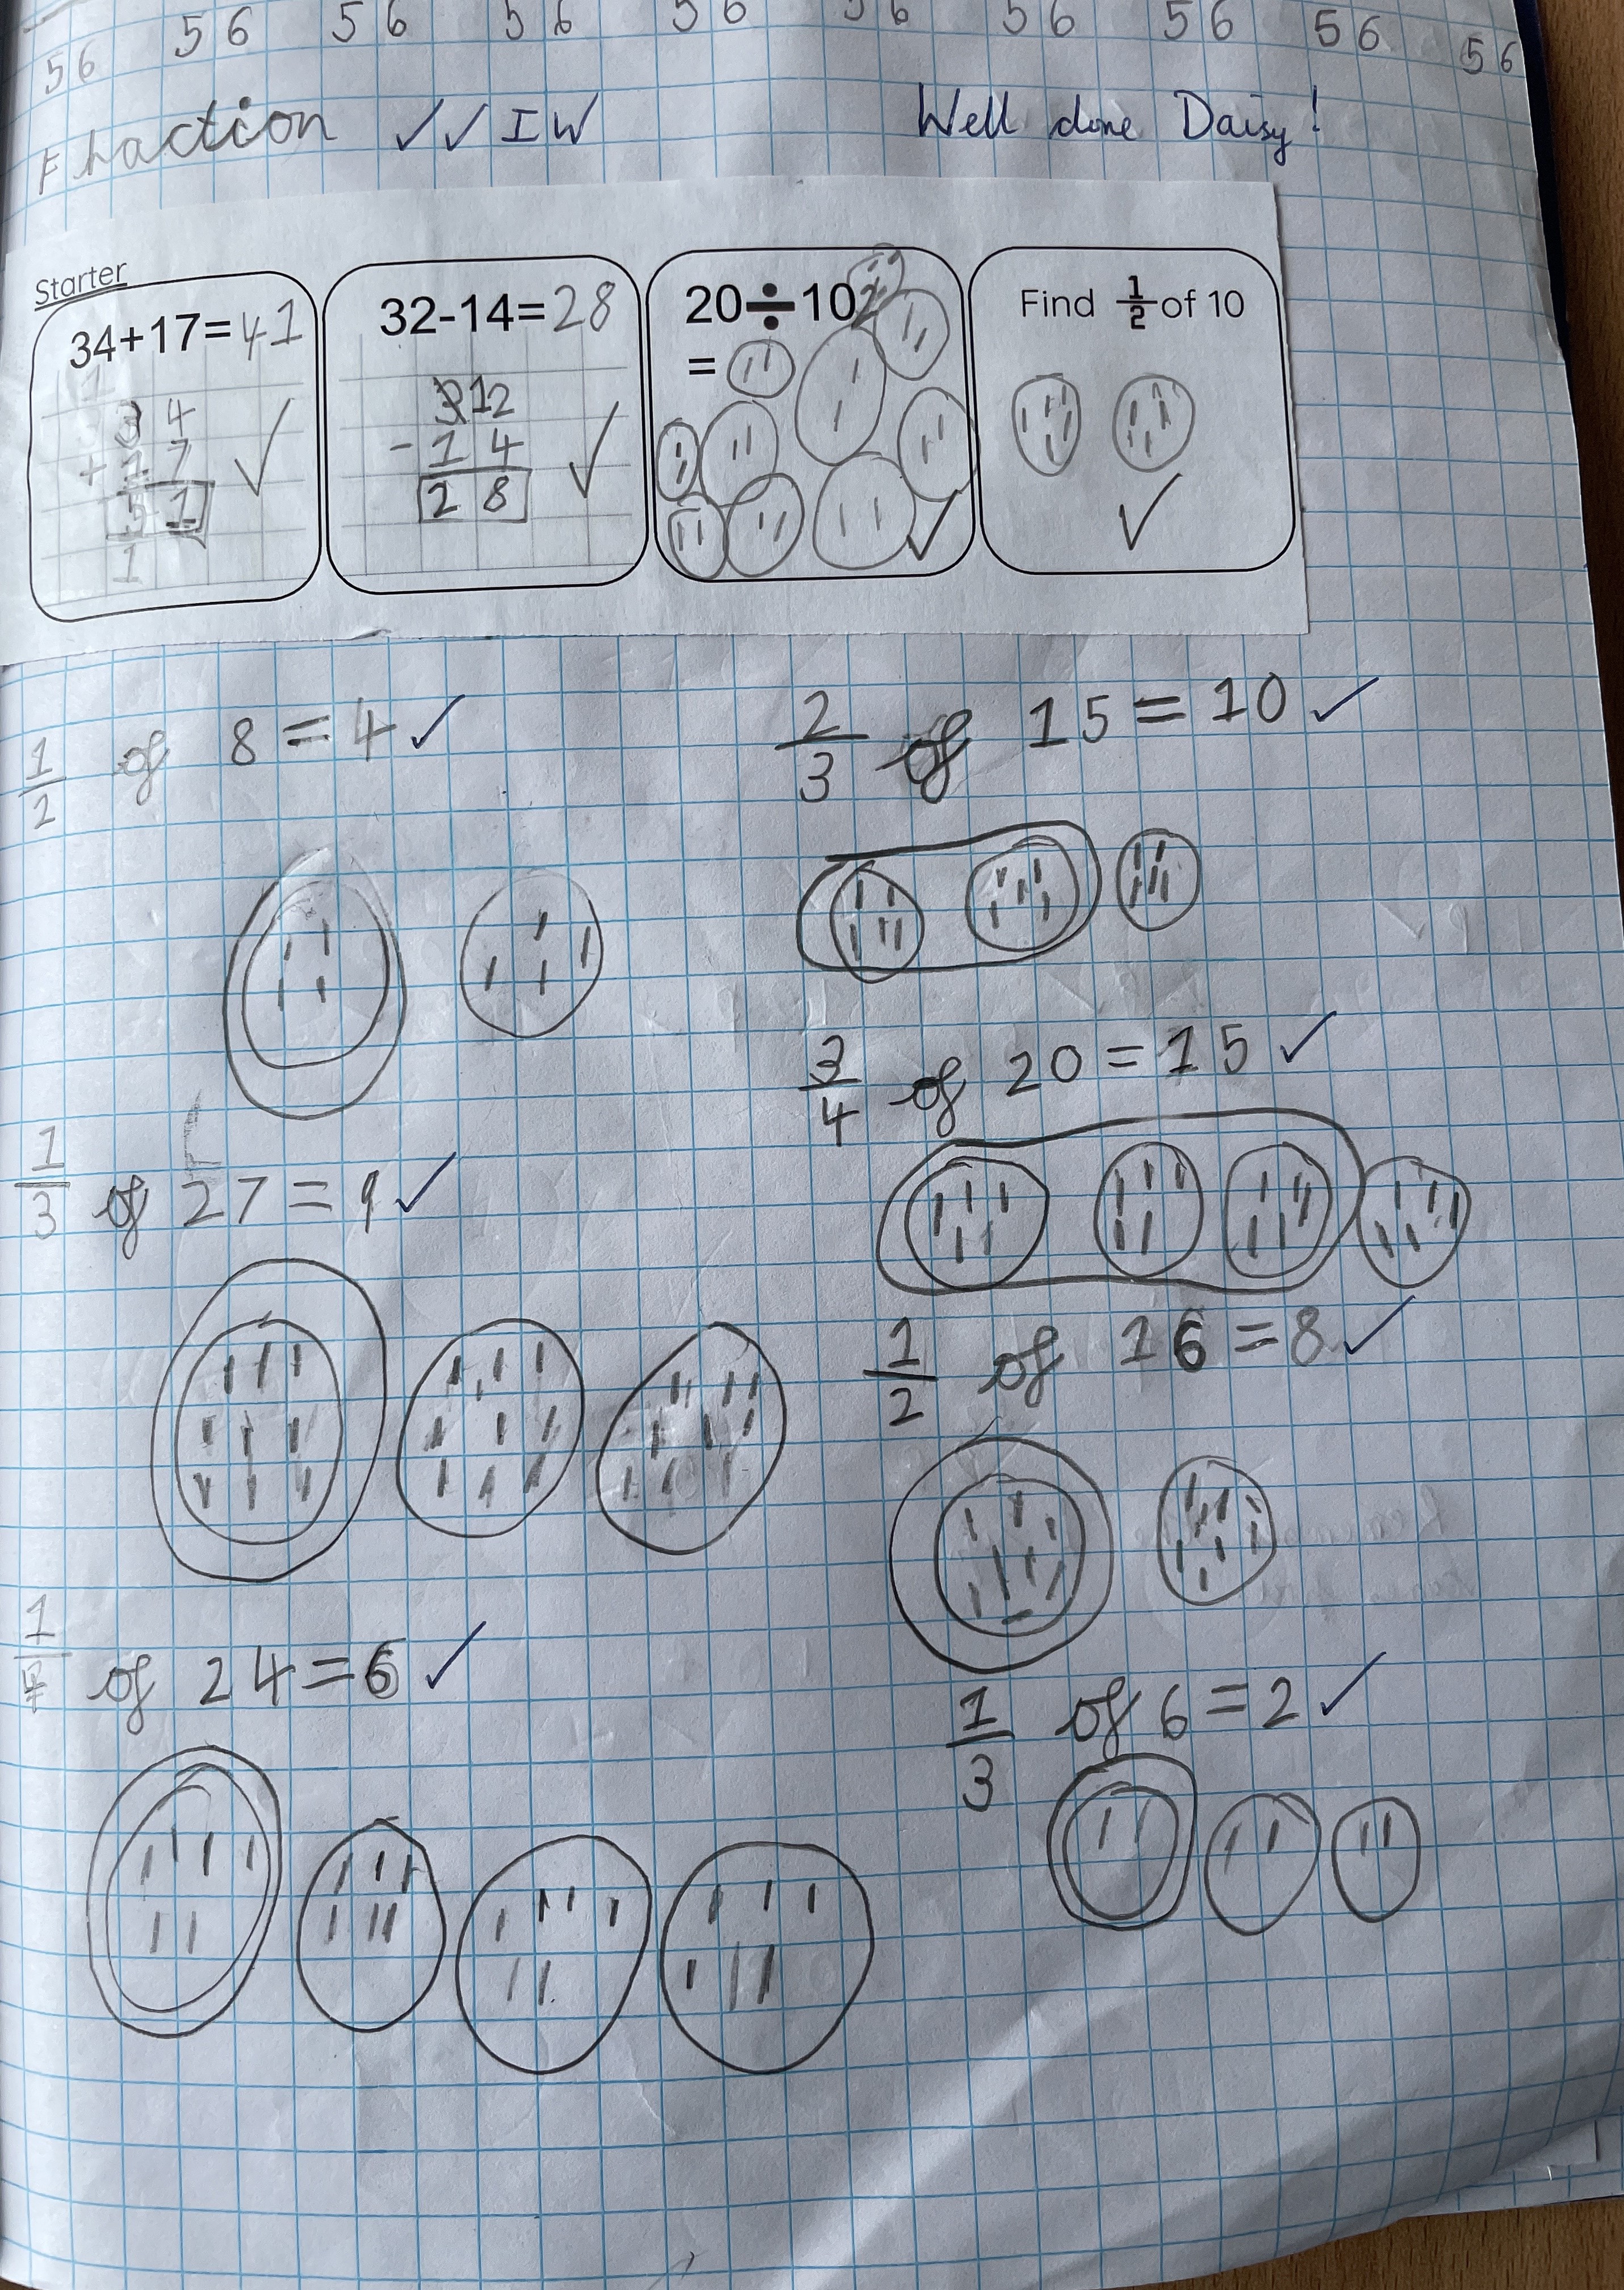 56 56 56 56 56 56 56 56 56 56
Fraction ✓✓ IW Well done Daisy!
Starter
34+17=41
1
3 4
+ 1 7
5 1
1
32-14=28
3 12
- 1 4
2 8
20÷10 2
=
Find 1/2 of 10
1/2 of 8 = 4 ✓
2/3 of 15 = 10 ✓
3/4 of 20 = 15 ✓
1/3 of 27 = 9 ✓
1/2 of 16 = 8 ✓
1/4 of 24 = 6 ✓
1/3 of 6 = 2 ✓